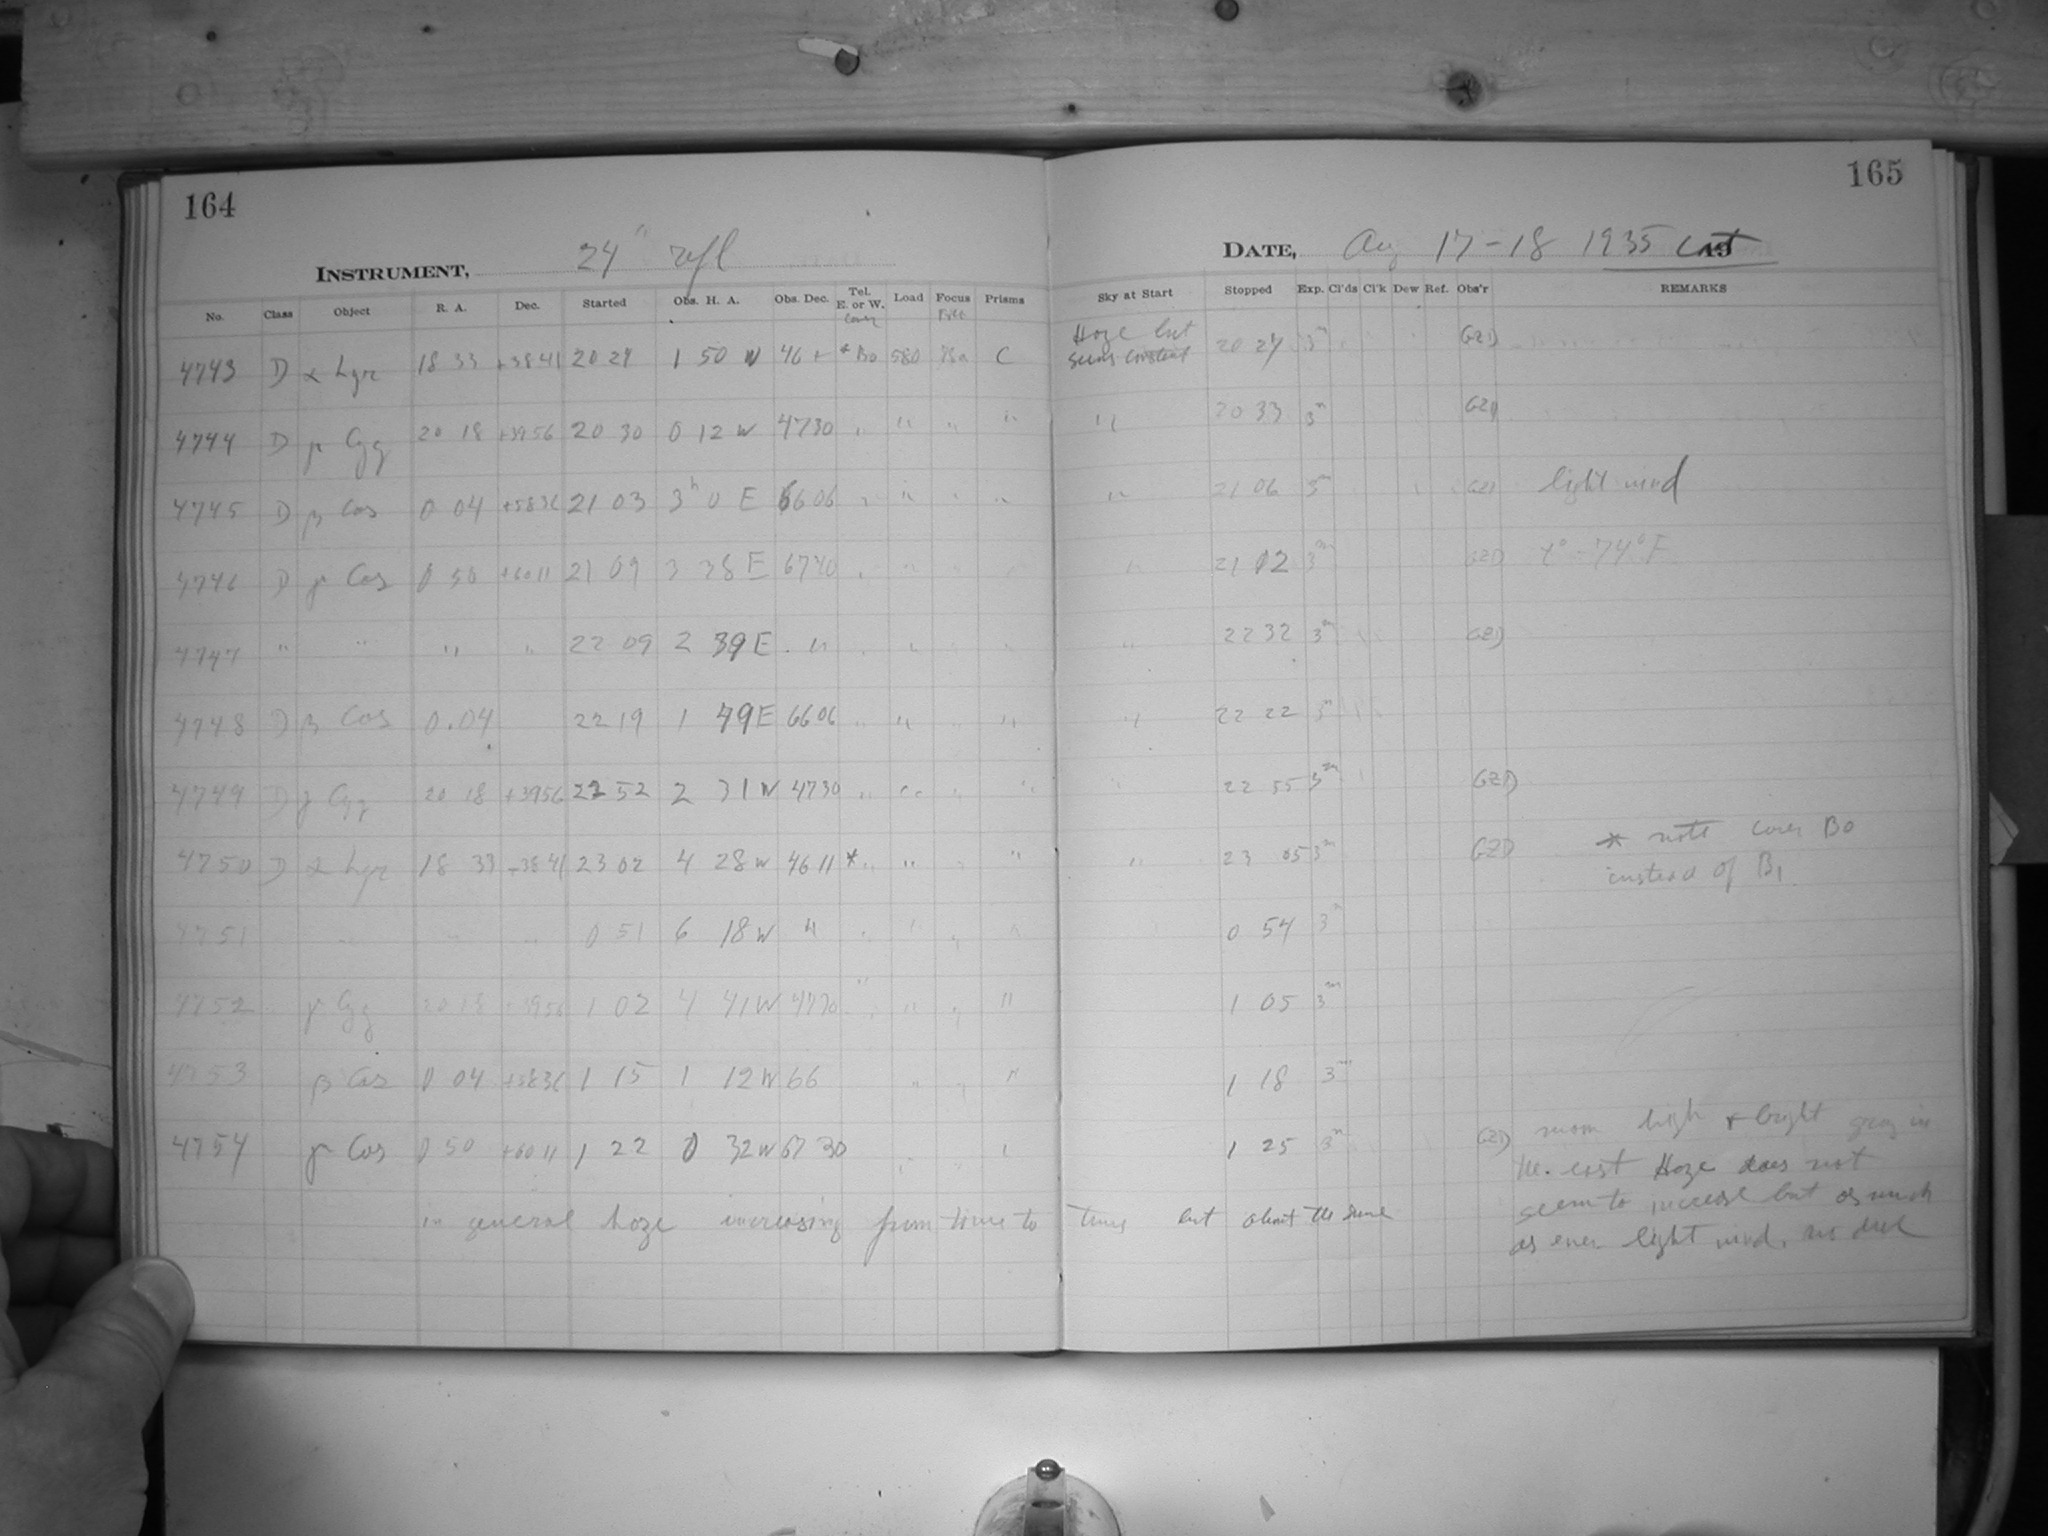 164
165
INSTRUMENT, 24" refl
DATE, Aug 17-18 1935 19
No. Class Object R. A. Dec. Started Obs. H. A. Obs. Dec. Tel. E. or W. Load Focus Prisms
Cover
Sky at Start Stopped Exp. Cl'ds Cl'k Dew Ref. Obs'r REMARKS
4743 D α Lyr 18 33 +38 41 20 24 1 50 W 46 * Bo 580 C Haze but seems constant 20 27 3m GZD
4744 D γ Cyg 20 18 +39 56 20 30 0 12 W 47 30 " " " " " 20 33 3m GZD
4745 D β Cas 0 04 +58 36 21 03 3h 0 E 66 06 " " " " " 21 06 GZD light wind
4746 D γ Cas 0 50 +60 11 21 09 3 38 E " " " 21 12 3m GZD t° - 74° F
4747 " " " " 22 09 2 39 E " " " " " 22 32 3m GZD
4748 D β Cas 0.04 22 19 1 49 E 66 06 " " " " " 22 22 3m
4749 D γ Cyg 20 18 +39 56 22 52 2 31 W 47 30 " " " " 22 55 3m GZD
4750 D α Lyr 18 33 +38 41 23 02 4 28 W 46 11 * " " " " " 23 05 3m GZD * note cover Bo
instead of B1
4751 " " " 0 51 6 18 W " " " " " 0 54 3m
4752 γ Cyg 20 18 +39 56 1 02 4 41 W 47 30 " " " " 1 05 3m
4753 β Cas 0 04 +58 36 1 15 1 12 W 66 " " " 1 18 3m
4754 γ Cas 0 50 +60 11 1 22 0 32 W 67 30 " " " 1 25 3m GZD moon high & bright in
the east Haze does not
seem to increase but as much
as ever light wind, no dew
in general haze increasing from time to time but about the same